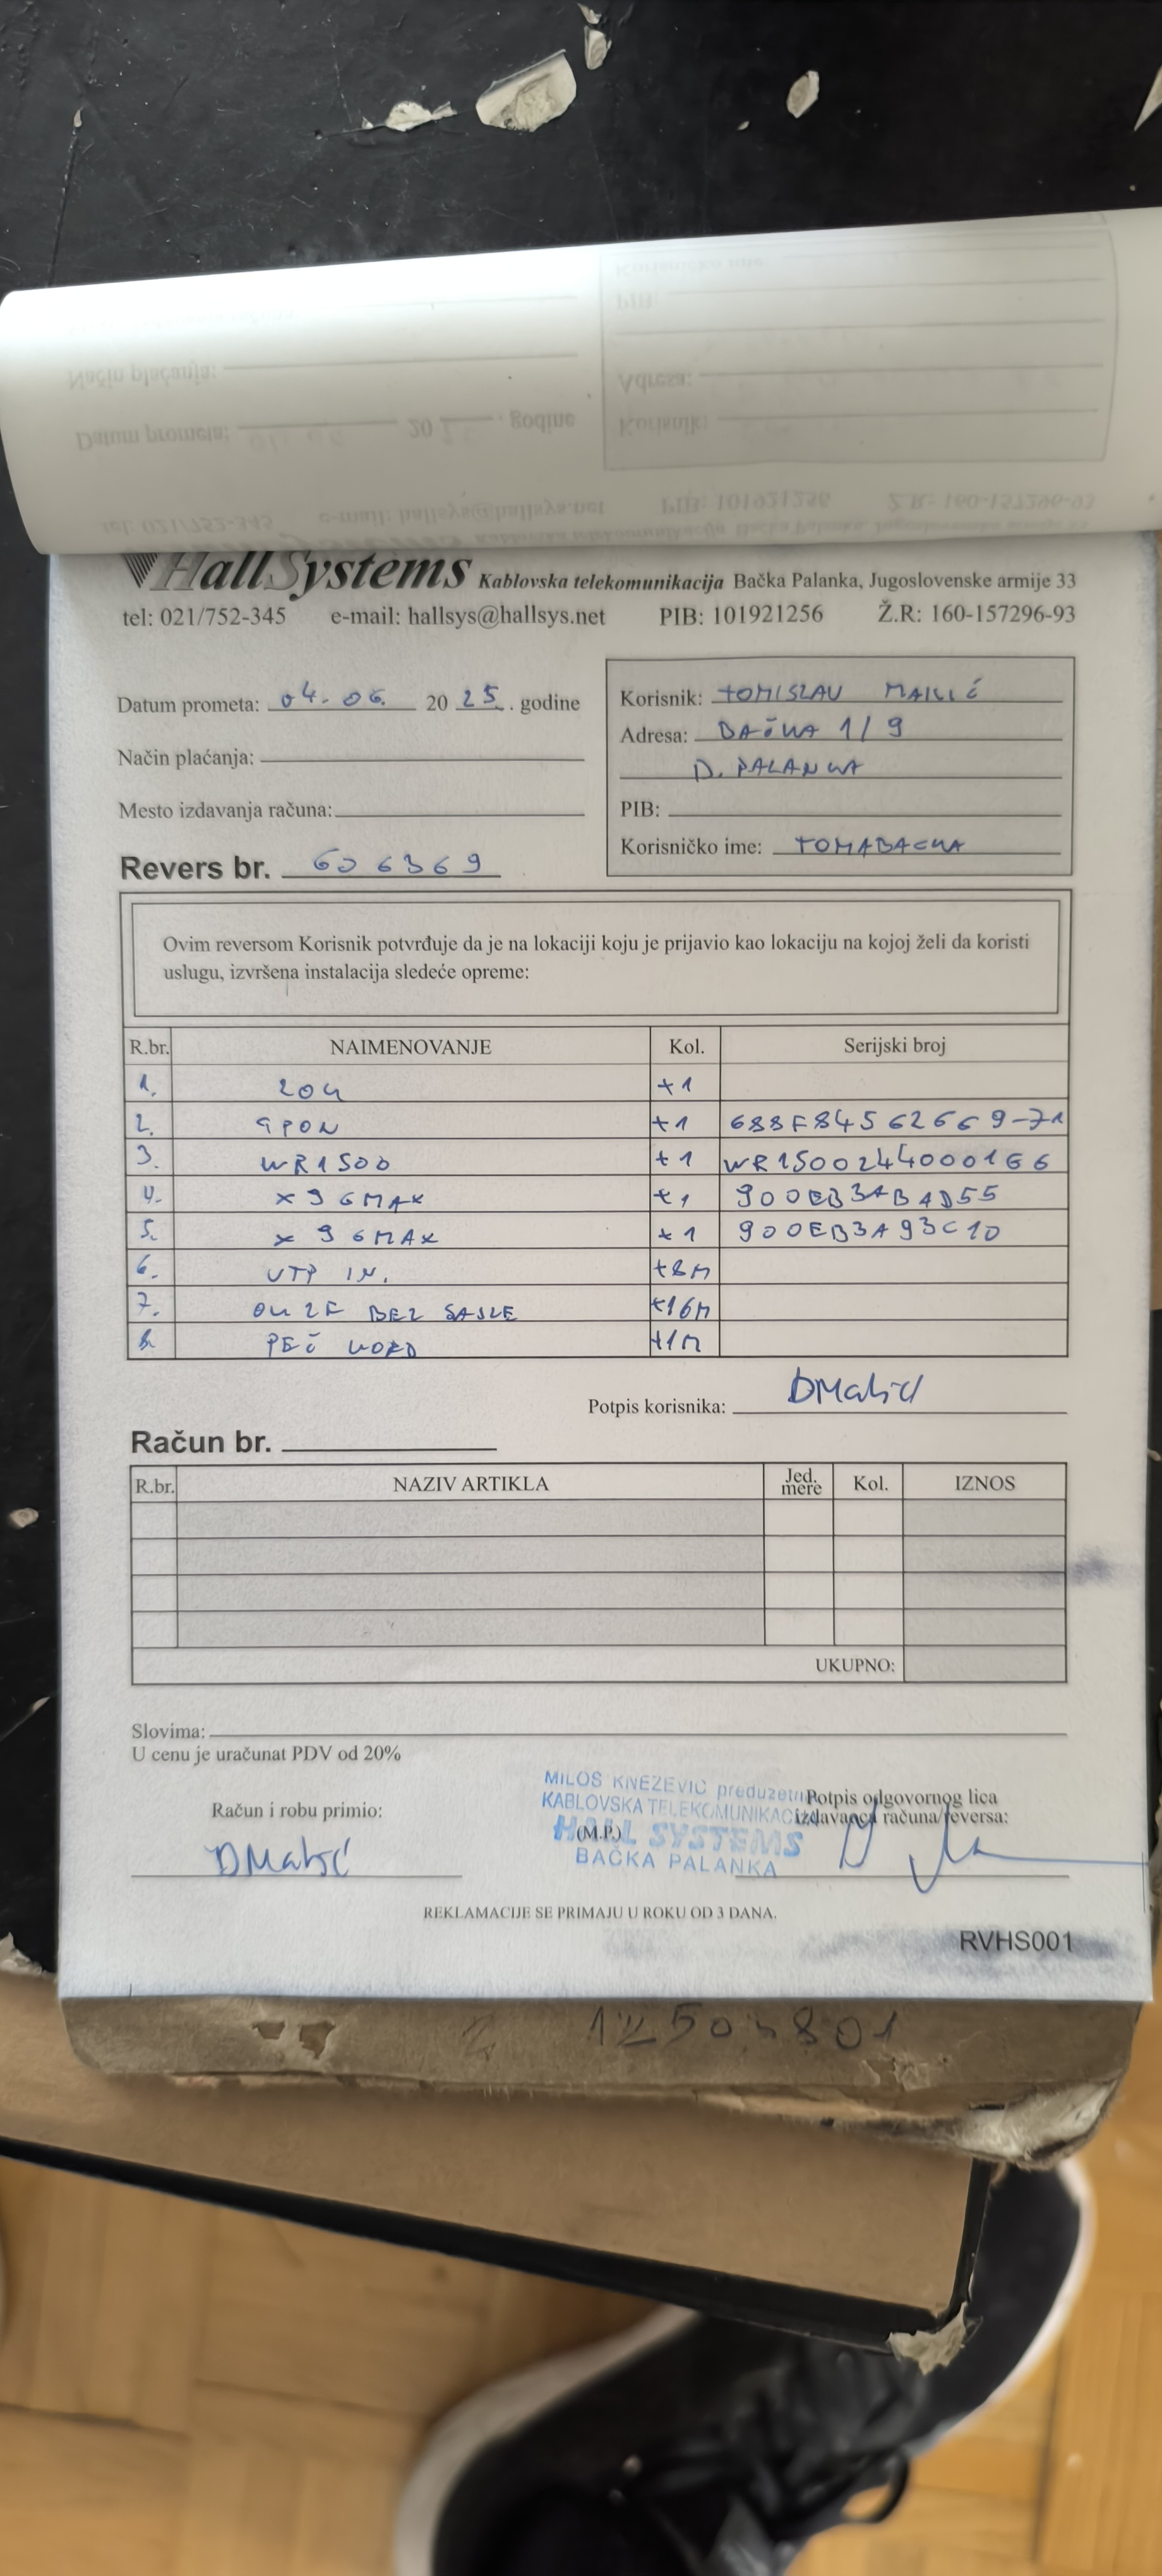 HallSystems Kablovska telekomunikacija Bačka Palanka, Jugoslovenske armije 33
tel: 021/752-345 e-mail: hallsys@hallsys.net PIB: 101921256 Ž.R: 160-157296-93
Datum prometa: 04. 06. 20 25. godine
Način plaćanja:
Mesto izdavanja računa:
Revers br. 606369
Korisnik: TOMISLAV
Adresa: BAČKA 1/9
B. PALANKA
PIB:
Korisničko ime: TOMABACKA
Ovim reversom Korisnik potvrđuje da je na lokaciji koju je prijavio kao lokaciju na kojoj želi da koristi
uslugu, izvršena instalacija sledeće opreme:
R.br. NAIMENOVANJE Kol. Serijski broj
1. ZOK +1
2. GPON +1 688F84562669-71
3. WR1500 +1 WR1500244000166
4. X96MAX +1 900EB3ABAD55
5. X96MAX +1 900EB3A93C10
6. UTP IN. +8M
7. OK 2F BEZ SAJLE +16M
8. PEČ KORD +1M
Potpis korisnika: DMalić
Račun br.
R.br. NAZIV ARTIKLA Jed. mere Kol. IZNOS
UKUPNO:
Slovima:
U cenu je uračunat PDV od 20%
Račun i robu primio:
DMalić
MILOŠ KNEŽEVIĆ preduzetnik
KABLOVSKA TELEKOMUNIKACIJA
(M.P.)
HALL SYSTEMS
BAČKA PALANKA
Potpis odgovornog lica
izdavaoca računa/reversa:
REKLAMACIJE SE PRIMAJU U ROKU OD 3 DANA.
RVHS001